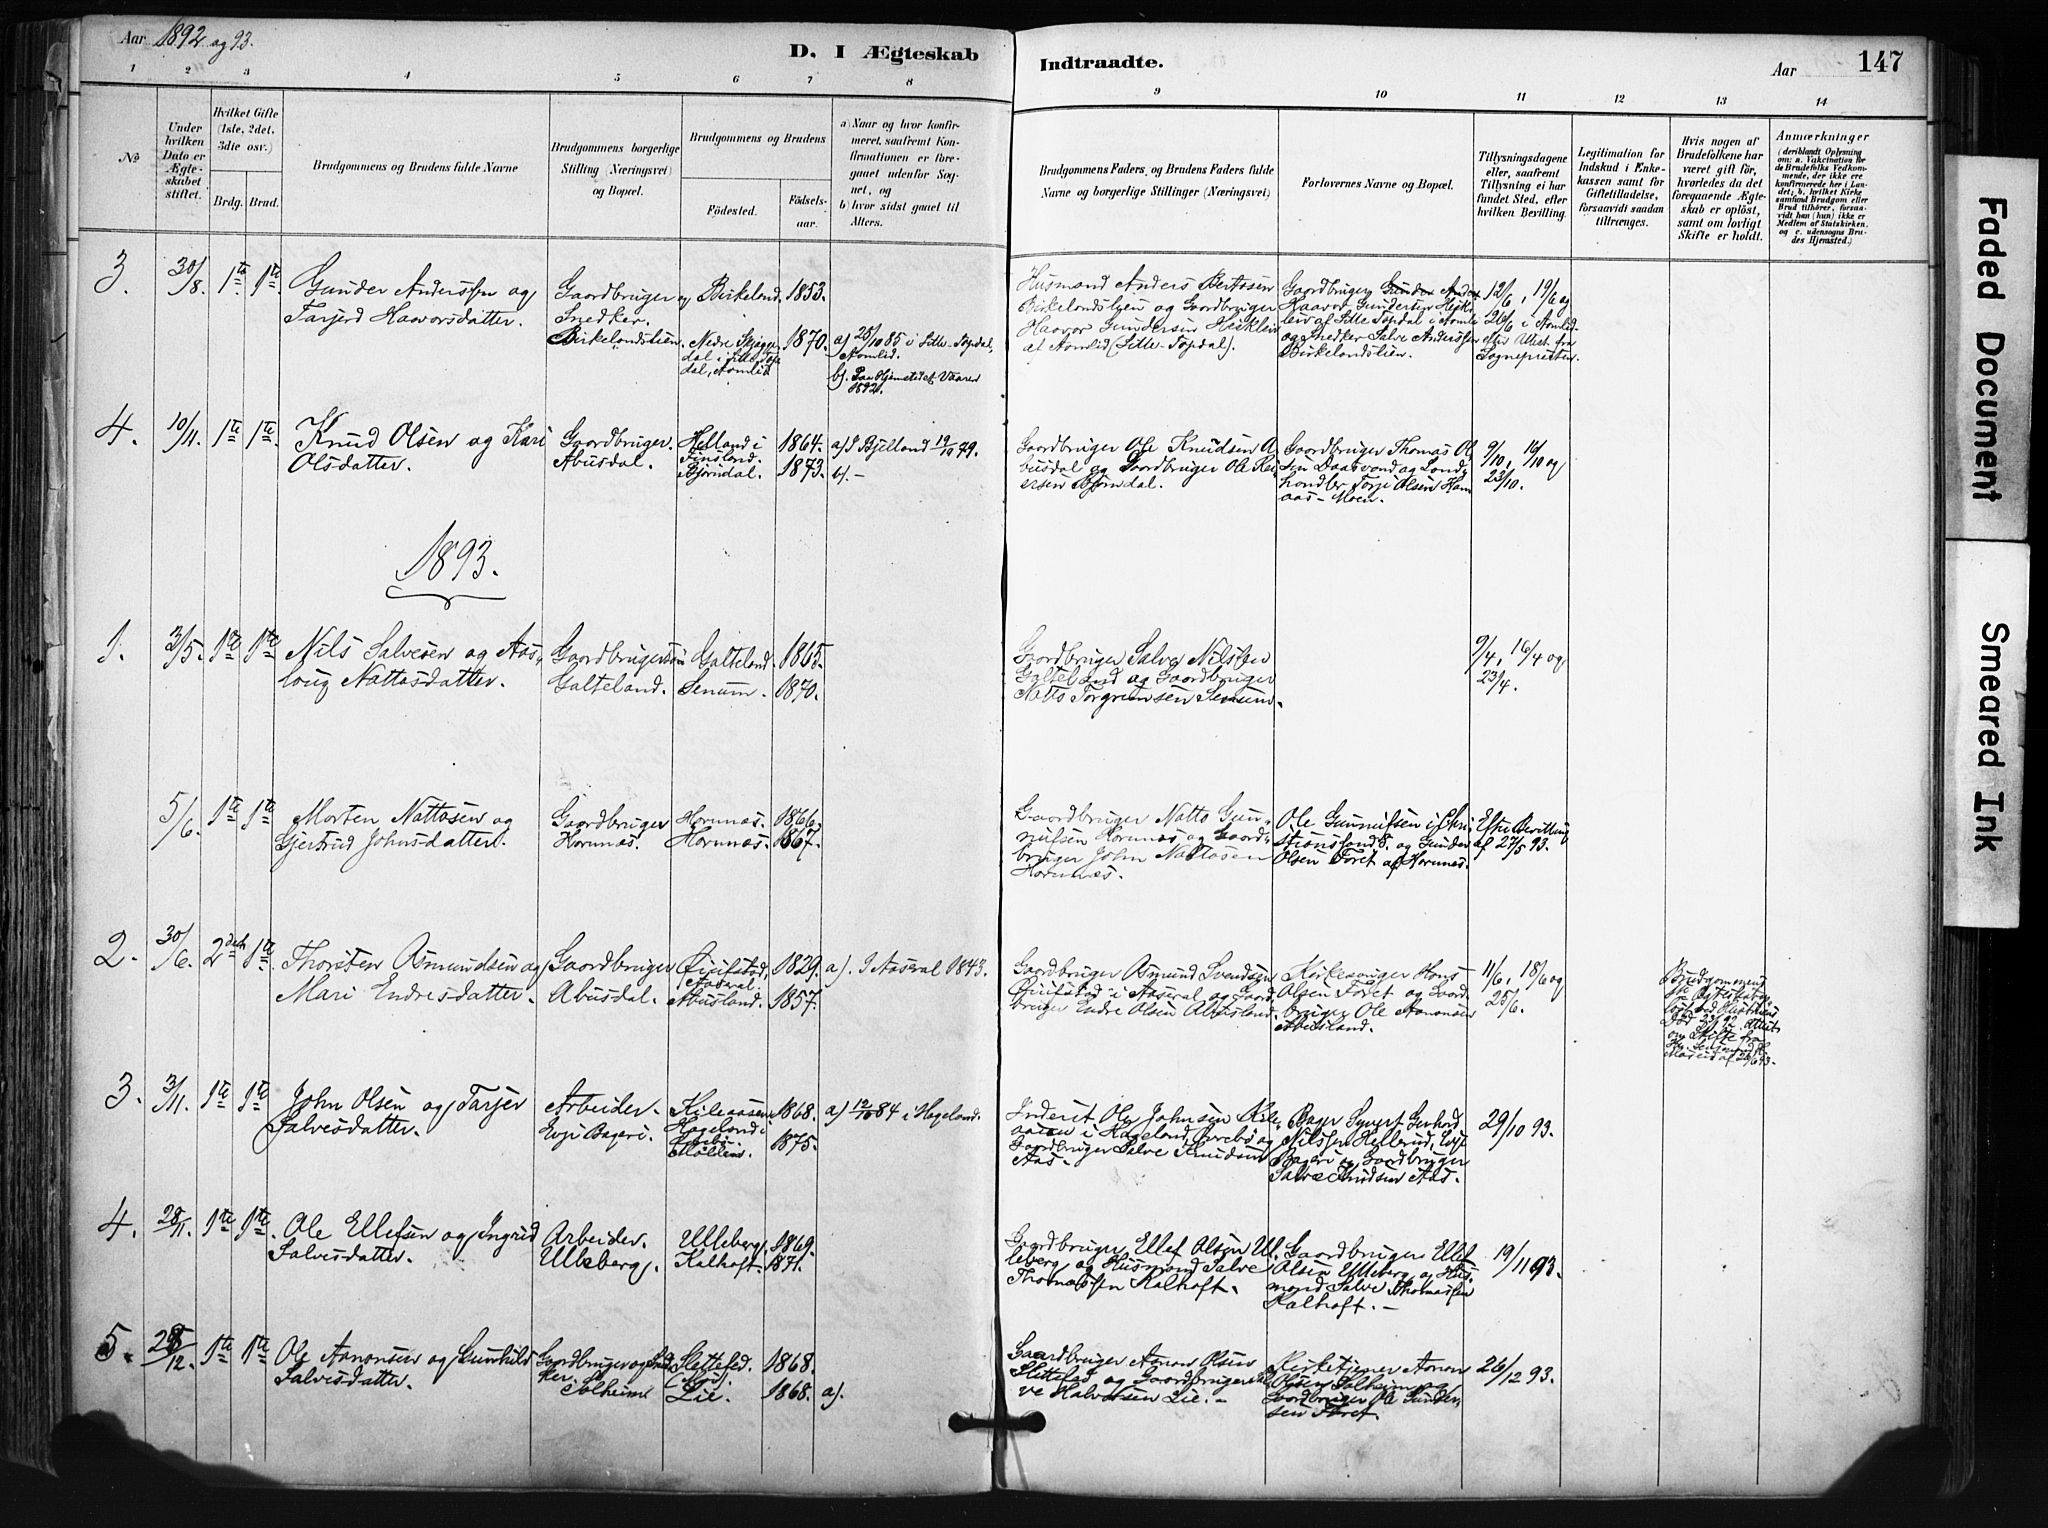 Aar 1892 og 93.
D. I Ægteskab
Indtraadte.
Aar
147
1 2 3 4 5 6 7 8
9 10 11 12 13 14
No
Under hvilken Dato er Ægteskabet stiftet.
Hvilket Gifte (1ste, 2det, 3die osv.)
Brdg. Brud.
Brudgommens og Brudens fulde Navne
Brudgommens borgerlige Stilling (Næringsvei) og Bopæl.
Brudgommens og Brudens
Fødested.
Fødselsaar.
a) Naar og hvor konfirmeret, saafremt Konfirmationen er foregaaet udenfor Sognet, og
b) hvor sidst gaaet til Alters.
Brudgommens Faders og Brudens Faders fulde Navne og borgerlige Stillinger (Næringsvei)
Forlovernes Navne og Bopæl.
Tillysningsdagene eller, saafremt Tillysning ei har fundet Sted, efter hvilken Bevilling.
Legitimation for Indskud i Enkekassen samt for Giftetilladelse, forsaavidt saadan tiltrænges.
Hvis nogen af Brudefolkene har været gift før, hvorledes da det foregaaende Ægteskab er opløst, samt om lovligt Skifte er holdt.
Anmærkninger
(deriblandt Oplysning om: a. Vakcination for de Brudefolks Vedkommende, der ikke ere konfirmerede her i Landet; b. hvilket Kirkesamfund Brudgom eller Brud tilhører, forsaavidt han (hun) ikke er Medlem af Statskirken, og c. udensogns Brudes Hjemsted.)
3. 30/8. 1te 1te
Gunder Anderssen og
Tarjerd Haavorsdatter.
Gaardbruger og
Snedker.
Birkelandslien.
Birkeland. 1853.
Nedre Skjeggedal i Lille Topdal, Aamlid 1870.
a) 25/10 85 i Lille-Topdal, Aamlid.
b). Paa Hjemstedet Vaaren 1892.
Husmand Anders Bertosen
Birkelandslien og Gaardbruger
Haavor Gundersen Heiklein
at Aamlid (Lille-Topdal).
Gaardbruger
Haavor Gundersen Heikleiv af Lille Topdal i Aamli
og Snedker Salve Anderssen
Birkelandslien.
12/6, 19/6 og
26/6 i Aamlid
efter Attest fra
Sognepresten.
4. 10/11. 1te 1te
Knud Olsen og Kari
Olsdatter.
Gaardbruger.
Abusdal.
Helland i
Finsland. 1864.
Bjørndal. 1873.
a) I Bjelland 19/10 79.
b). -
Gaardbruger Ole Knudsen Abusdal og Gaardbruger Ole Reiersen Bjørndal.
Gaardbruger Thomas Olsen Daasvand og Landhandler Torje Olsen Hanaas-Moen.
9/10, 16/10 og
23/10.
1893.
1. 3/5. 1te 1te
Nils Salvesen og Aaslaug Nattosdatter.
Gaardbrugersøn
Galteland.
Galteland. 1865.
Senum. 1870.
Gaardbruger Salve Nilssen
Galteland og Gaardbruger
Natto Torgrimsen Senum.
9/4, 16/4 og
23/4.
5/6. 1te 1te
Morten Nattosen og
Gjertrud Johnsdatter.
Gaardbruger
Hornnæs.
Hornnæs. 1866.
Hornnæs. 1867.
Gaardbruger Natto Gunnufsen Hornnæs og Gaardbruger John Nattosen
Hornnæs.
Ole Gunnufsen i Christianssands. og Gunder
Olsen Foret af Hornnes.
Efter Bevilling
af 27/5 93.
2. 30/6. 2det 1te
Thorsten Asmundsen og
Mari Endresdatter.
Gaardbruger
Abusdal.
Øisifstad, Aaseral. 1829.
Abusland. 1857.
a). I Aaseral 1843.
Gaardbruger Asmund Svendsen
Øisifstad i Aaseral og Gaardbruger Endre Olsen Abusland.
Kirkesanger Hans
Olsen Foret og Gaardbruger Ole Aanonsen
Abusland.
11/6, 18/6 og
25/6.
Brudgommens
3. 3/11. 1te 1te
John Olsen og Tarjer
Salvesdatter.
Arbeider.
Evje Bageri.
Kileaasen i
Hægeland i
Øvrebø. 1868.
Molden. 1875.
a) 12/10 84 i Hægeland.
Inderst Ole Johnsen Kileaasen i Hægeland, Øvrebø og
Gaardbruger Salve Knudsen
Aas.
Bager Syvert Gerhard
Nilssen Hellerud, Evje
Bageri og Gaardbruger
Salve Knudsen Aas.
29/10 93.
4. 28/11. 1te 1te
Ole Ellefsen og Ingrid
Salvesdatter.
Arbeider.
Ulleberg.
Ulleberg. 1869.
Kalhoft. 1871.
Gaardbruger Ellef Olsen Ulleberg og Husmand Salve
Thomassen Kalhoft.
Gaardbruger Ellef
Olsen Ulleberg og Husmand Salve Thomassen
Kalhoft. -
19/11 93.
5. 28/12. 1te 1te
Ole Aanonsen og Gunhild
Salvesdatter.
Gaardbruger og Snedker.
Solheim
Slettefed. 1868.
Lie. 1868. a).
Gaardbruger Aanon Olsen
Slettefed og Gaardbruger Salve Halvorsen Lie. -
Kirketjener Aanon
Olsen Solheim og
Gaardbruger Ole Gundersen Foret.
26/12 93.
Faded Document
Smeared Ink